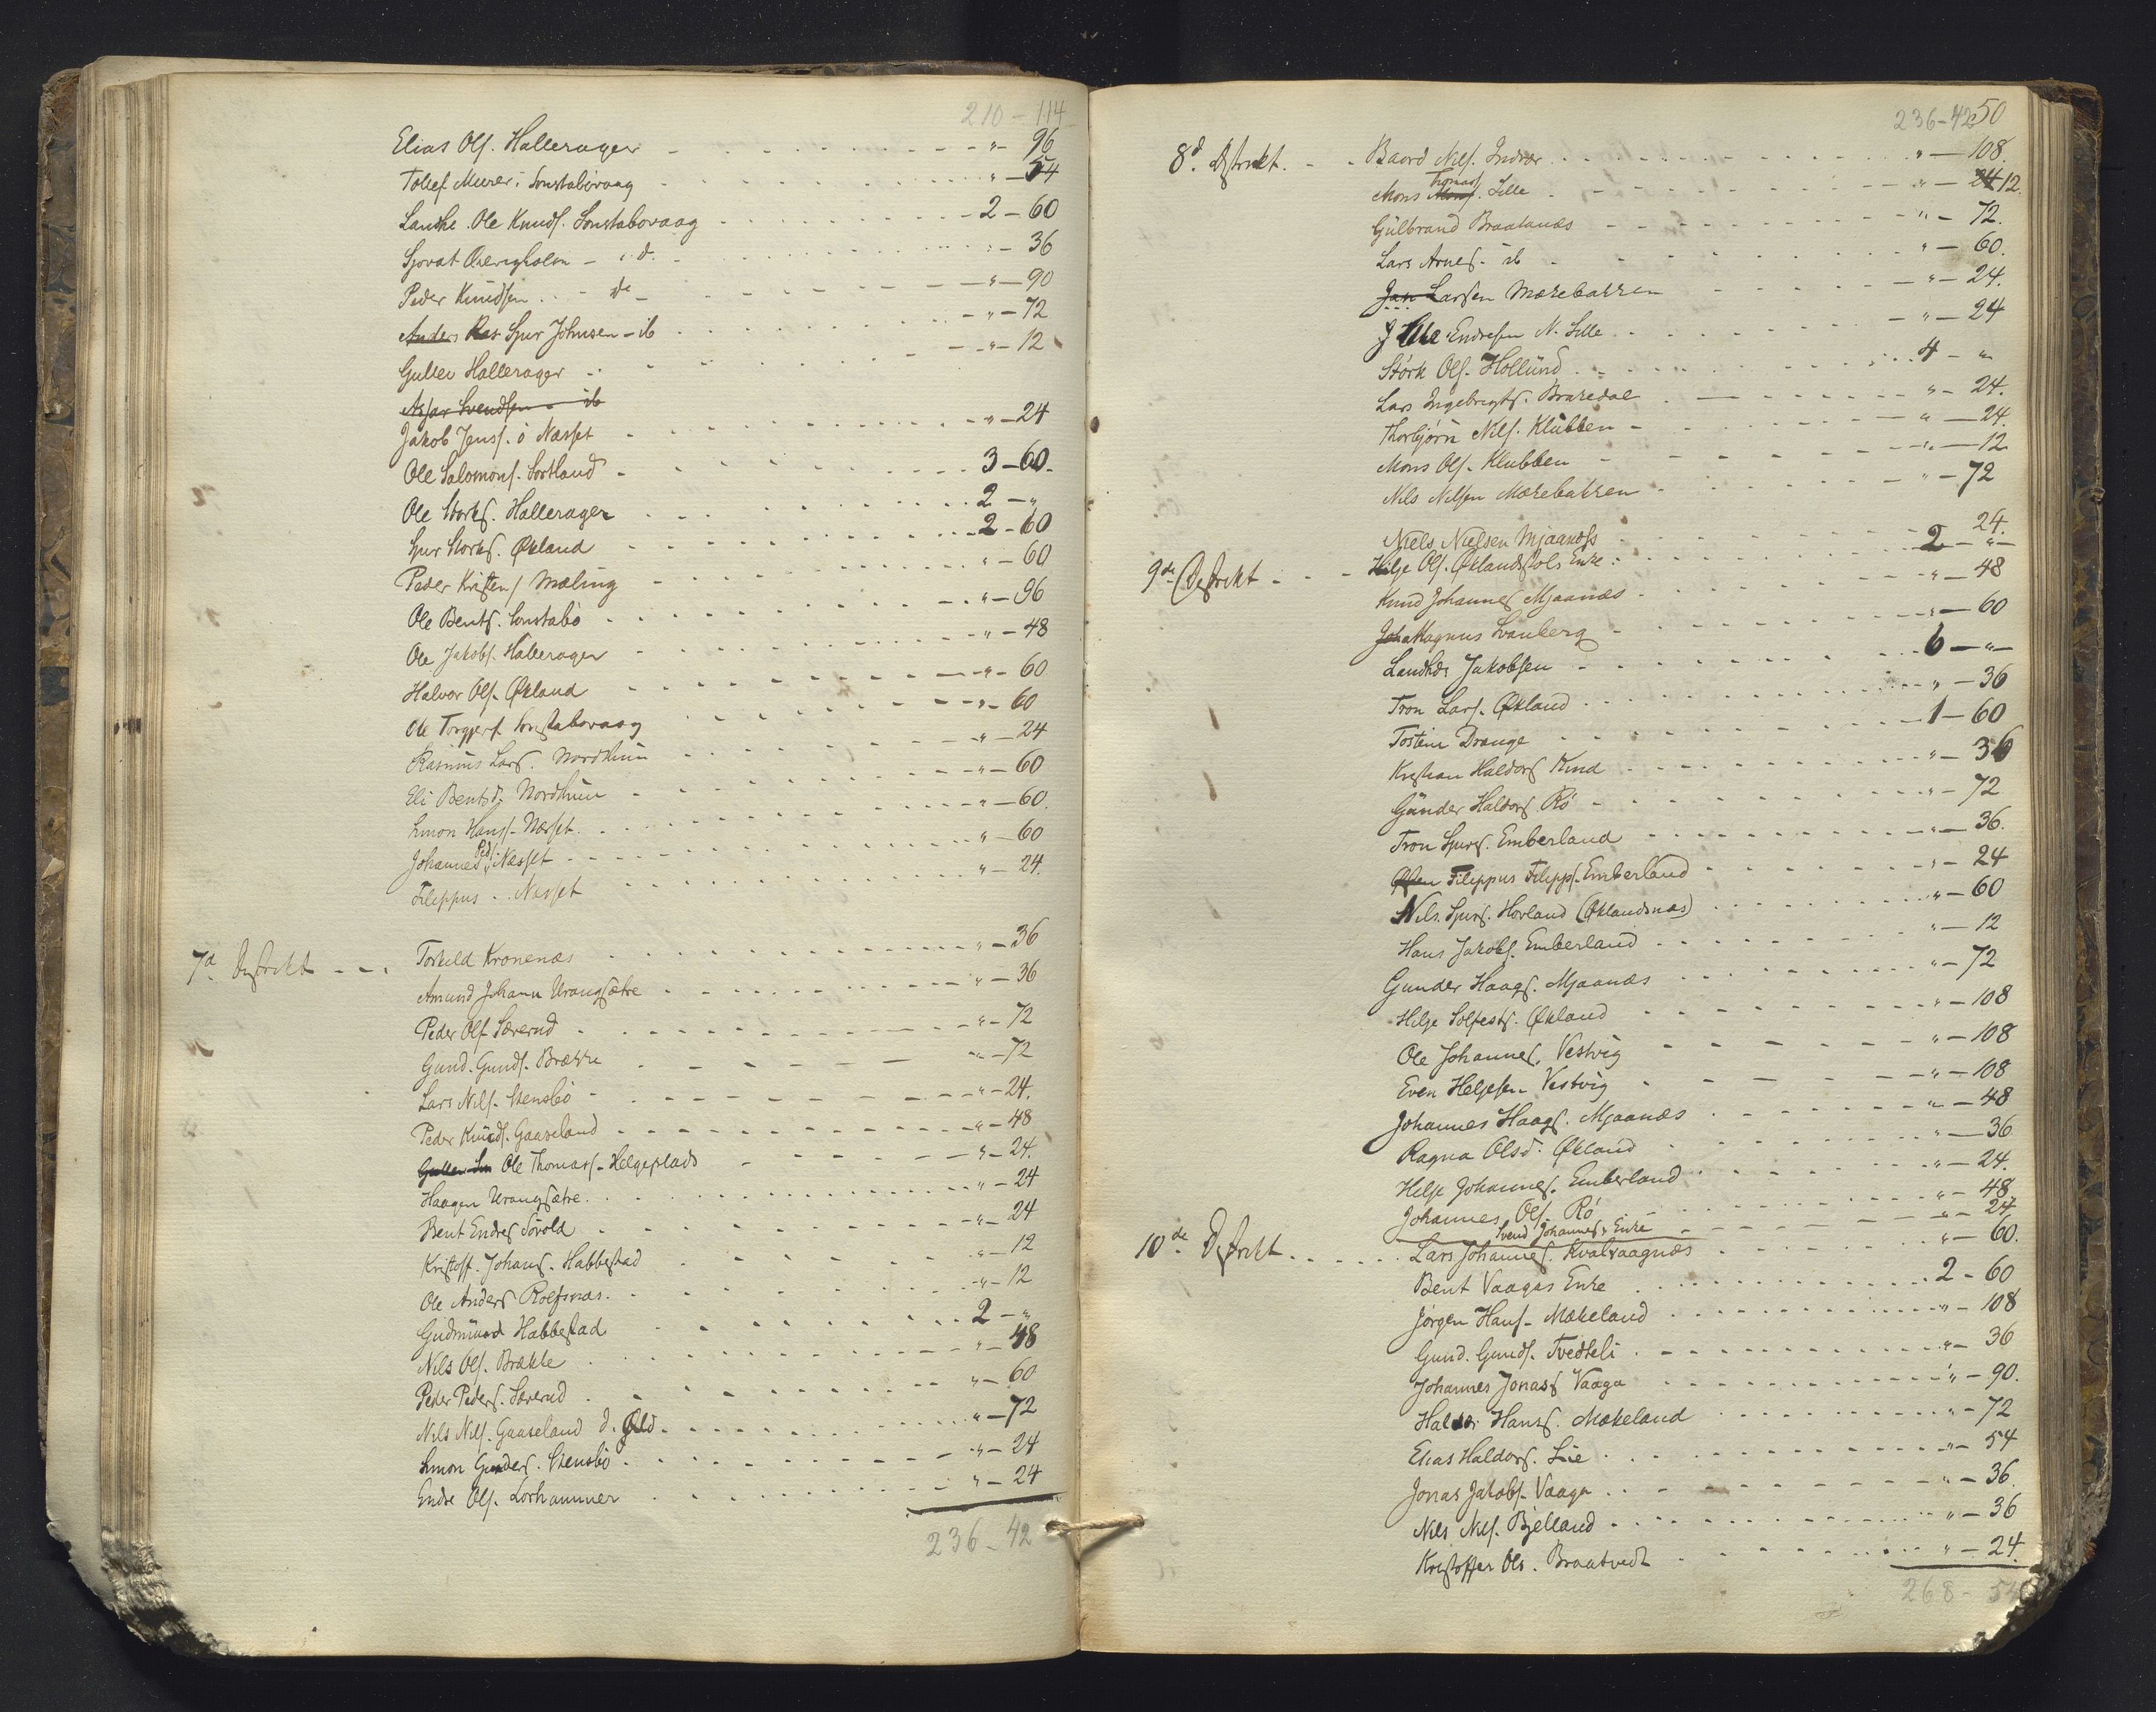 210 - 114
Elias Ols. Hallerager - - - " - 96
Tollef Murer i Sonstabövaag - - - " - 54
Landhr. Ole Knuds. Sonstabovaag - - - 2 - 60
Sjovat - i.d. - - - " - 36
Peder Knudsen - do - - - " - 90
Anders Ras Sjur Johnsen - ib - - - " - 72
Gullev Hallerager - - - " - 12
Assar Svendsen - ib
Jakob Jens. i Næsset - - - " - 24
Ole Salomons. Sortland - - - 3 - 60.
Ole Storks. Hallerager - - - 2 - "
Sjur Storks. Økland - - - 2 - 60
Peder Kristens Mæling - - - " - 60
Ole Bents. Sonstabö - - - " - 96
Ole Jakobs. Hallerager - - - " - 48
Halvor Ols. Økland - - - " - 60
Ole Torgjers. Sonstabovaag - - - " - 60
Rasmus Lars. Nordhuus - - - " - 24
Eli Bentsd. Nordhuus - - - " - 60
Simon Hans. Næsset. - - - " - 60.
Johannes Peds. Næsset - - - " - 60
Filippus . . Næsset - - - " - 24.
7d Distrikt - - - Torkild Kronenæs - - - " - 36
Amund Johann Vrangsætre - - - " - 36
Peder Ols. Særevd - - - " - 72
Gund. Gunds. Brække - - - " - 72
Lars Nils. Stensbö - - - " - 24.
Peder Knuds. Gaaseland - - - " - 48
Ole Thomass. Helgeplads - - - " - 24.
Haagen Vrangsætre. - - - " - 24
Bent Endres Sörold - - - " - 24
Kristoff. Johans. Habbestad - - - " - 12
Ole Anders Rolfsnæs. - - - " - 12
Gudmund Habbestad - - - 2 - "
Nils Ols. Brække - - - " - 48
Peder Peders. Særevd - - - " - 60
Nils Nils. Gaaseland d. Æld. - - - " - 72
Simon Gunders. Stensbö - - - " - 24
Endre Ols. Lorhammer - - - " - 24
236 - 42
236 - 42 50
8d. Distrikt. - - - Baard Nils. Indvær - - - " - 108.
Mons Mons. Thomass. Lille - - - " - 24 12.
Gulbrand Braatanæs - - - " - 72.
Lars Arnes. ib - - - " - 60.
Jan Larsen Mærebakken - - - " - 24.
Endresen N. Lille - - - " - 24
Störk Ols. Hollund - - - 4 - "
Lars Ingebrigts. Brakedal - - - " - 24.
Thorbjörn Nils. Klubben - - - " - 24.
Mons Ols. Klubben - - - " - 12
Nils Nilsen Mærebakken - - - " - 72
Niels Nielsen Mjaanæss - - - 24.
9de Distrikt - - - Hilje Ols. Øklandstøls Enke - - - 2 - "
Knud Johannes Mjaanæs - - - " - 48
Joh Magnus Svanberg - - - " - 60
Landhdr Jakobsen - - - 6 - "
Tron Lars. Økland - - - " - 36
Tostein Drange - - - 1 - 60
Kristian Haldors Kind - - - " - 36
Gunder Haldors Rö - - - " - 72
Tron Sjurs. Emberland - - - " - 36.
Østen Filippus Filipps. Emberland - - - " - 24
Nils. Sjurs. Hovland (Øklandsnæs) - - - " - 60
Hans Jakobs. Emberland - - - " - 12
Gunder Haags. Mjaanæs - - - " - 72
Hilje Solfests. Økland - - - " - 108
Ole Johannes. Vestvig - - - " - 108
Even Heljesen Vestvig - - - " - 108
Johannes Haags. Mjaanæs - - - " - 48
Ragna Olsd. Økland - - - " - 36
Helje Johannes. Emberland - - - " - 24.
Johannes. Ols. Rö - - - " - 48.
Svend Johannes. Enke - - - " - 24
10de Distrikt. - - - Lars Johannes. Kvalvaagnæs - - - " - 60.
Bent Vaagas Enke - - - 2 - 60
Jörgen Hans. Mækeland - - - " - 108
Gund. Gunds. Tvedteli - - - " - 36
Johannes Jonass Vaaga - - - " - 90.
Haldor Hans. Mækeland - - - " - 72
Elias Haldors. Lie - - - " - 54
Jonas Jakobs. Vaage - - - " - 36.
Nils Nils. Bjelland - - - " - 36
Kristoffer Ols. Braatvedt - - - " - 24.
268 - 54